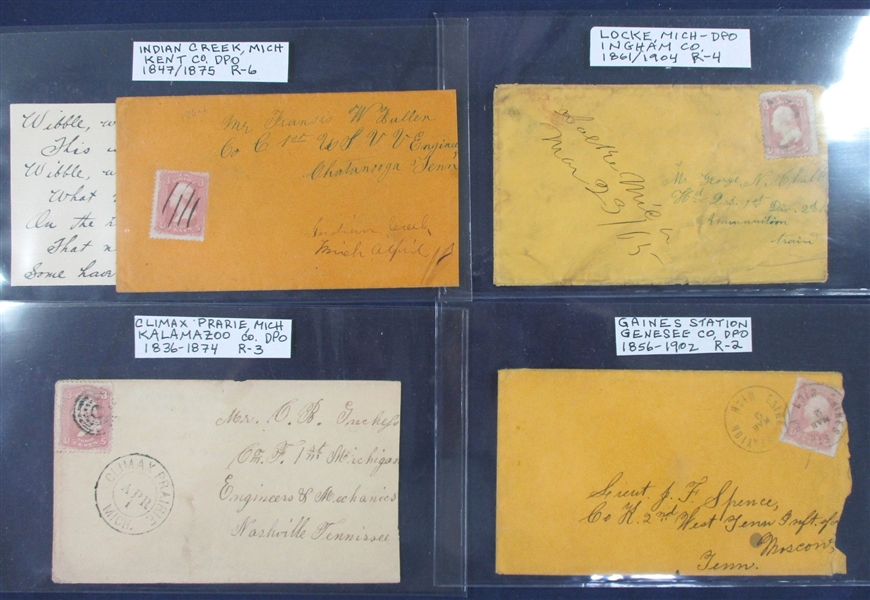 INDIAN CREEK, MICH
KENT CO, DPO
1847/1875 R-6
Wibble, w
This
Wibble, w
What
On the
That n
Some have
Mr Francis W Fullen
Co C 1st U S V V Engine
Chatanooga Tenn
Indian Creek
Mich
LOCKE, MICH-DPO
INGHAM CO,
1861/1904 R-4
Locke Mich
Mar 29/65
Mr George, N.
Hd Qs 1st Div. 2d
Ammunition
train
CLIMAX PRARIE, MICH
KALAMAZOO CO. DPO
1836-1874 R-3
3
CLIMAX PRAIRIE
APR
1
MICH.
Mr. O. B. Inckes
Co. F. 1st Michigan
Engineers & Mechanics
Nashville Tennissee
GAINES STATION
GENESEE CO, DPO
1856-1902 R-2
GAINES STATION MICH
MAR
Lieut J. F. Spence,
Co K. 2nd West Tenn Inft. of
Moscow,
Tenn.